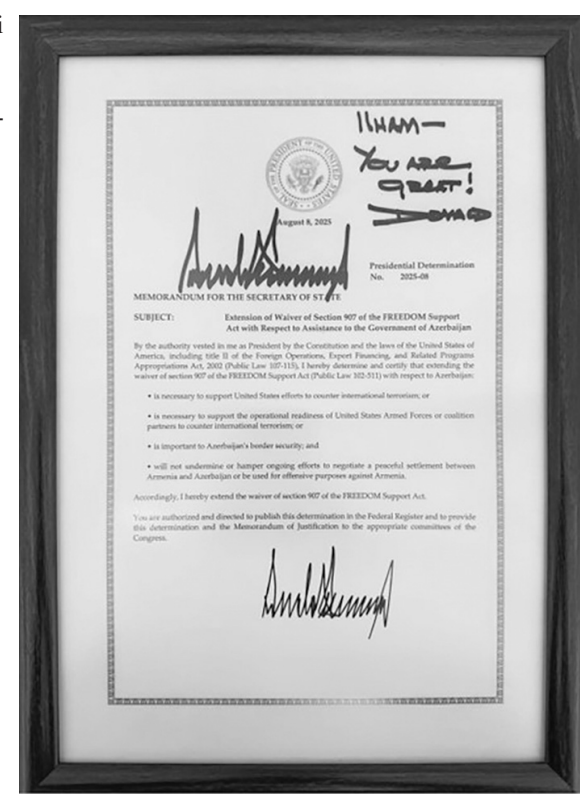 i
-
ILHAM—
YOU ARE
GREAT!
DONALD
SEAL OF THE PRESIDENT OF THE UNITED STATES
August 8, 2025
Presidential Determination
No. 2025-08
MEMORANDUM FOR THE SECRETARY OF STATE
SUBJECT: Extension of Waiver of Section 907 of the FREEDOM Support
Act with Respect to Assistance to the Government of Azerbaijan
By the authority vested in me as President by the Constitution and the laws of the United States of
America, including title II of the Foreign Operations, Export Financing, and Related Programs
Appropriations Act, 2002 (Public Law 107-115), I hereby determine and certify that extending the
waiver of section 907 of the FREEDOM Support Act (Public Law 102-511) with respect to Azerbaijan:
• is necessary to support United States efforts to counter international terrorism; or
• is necessary to support the operational readiness of United States Armed Forces or coalition
partners to counter international terrorism; or
• is important to Azerbaijan's border security; and
• will not undermine or hamper ongoing efforts to negotiate a peaceful settlement between
Armenia and Azerbaijan or be used for offensive purposes against Armenia.
Accordingly, I hereby extend the waiver of section 907 of the FREEDOM Support Act.
You are authorized and directed to publish this determination in the Federal Register and to provide
this determination and the Memorandum of Justification to the appropriate committees of the
Congress.